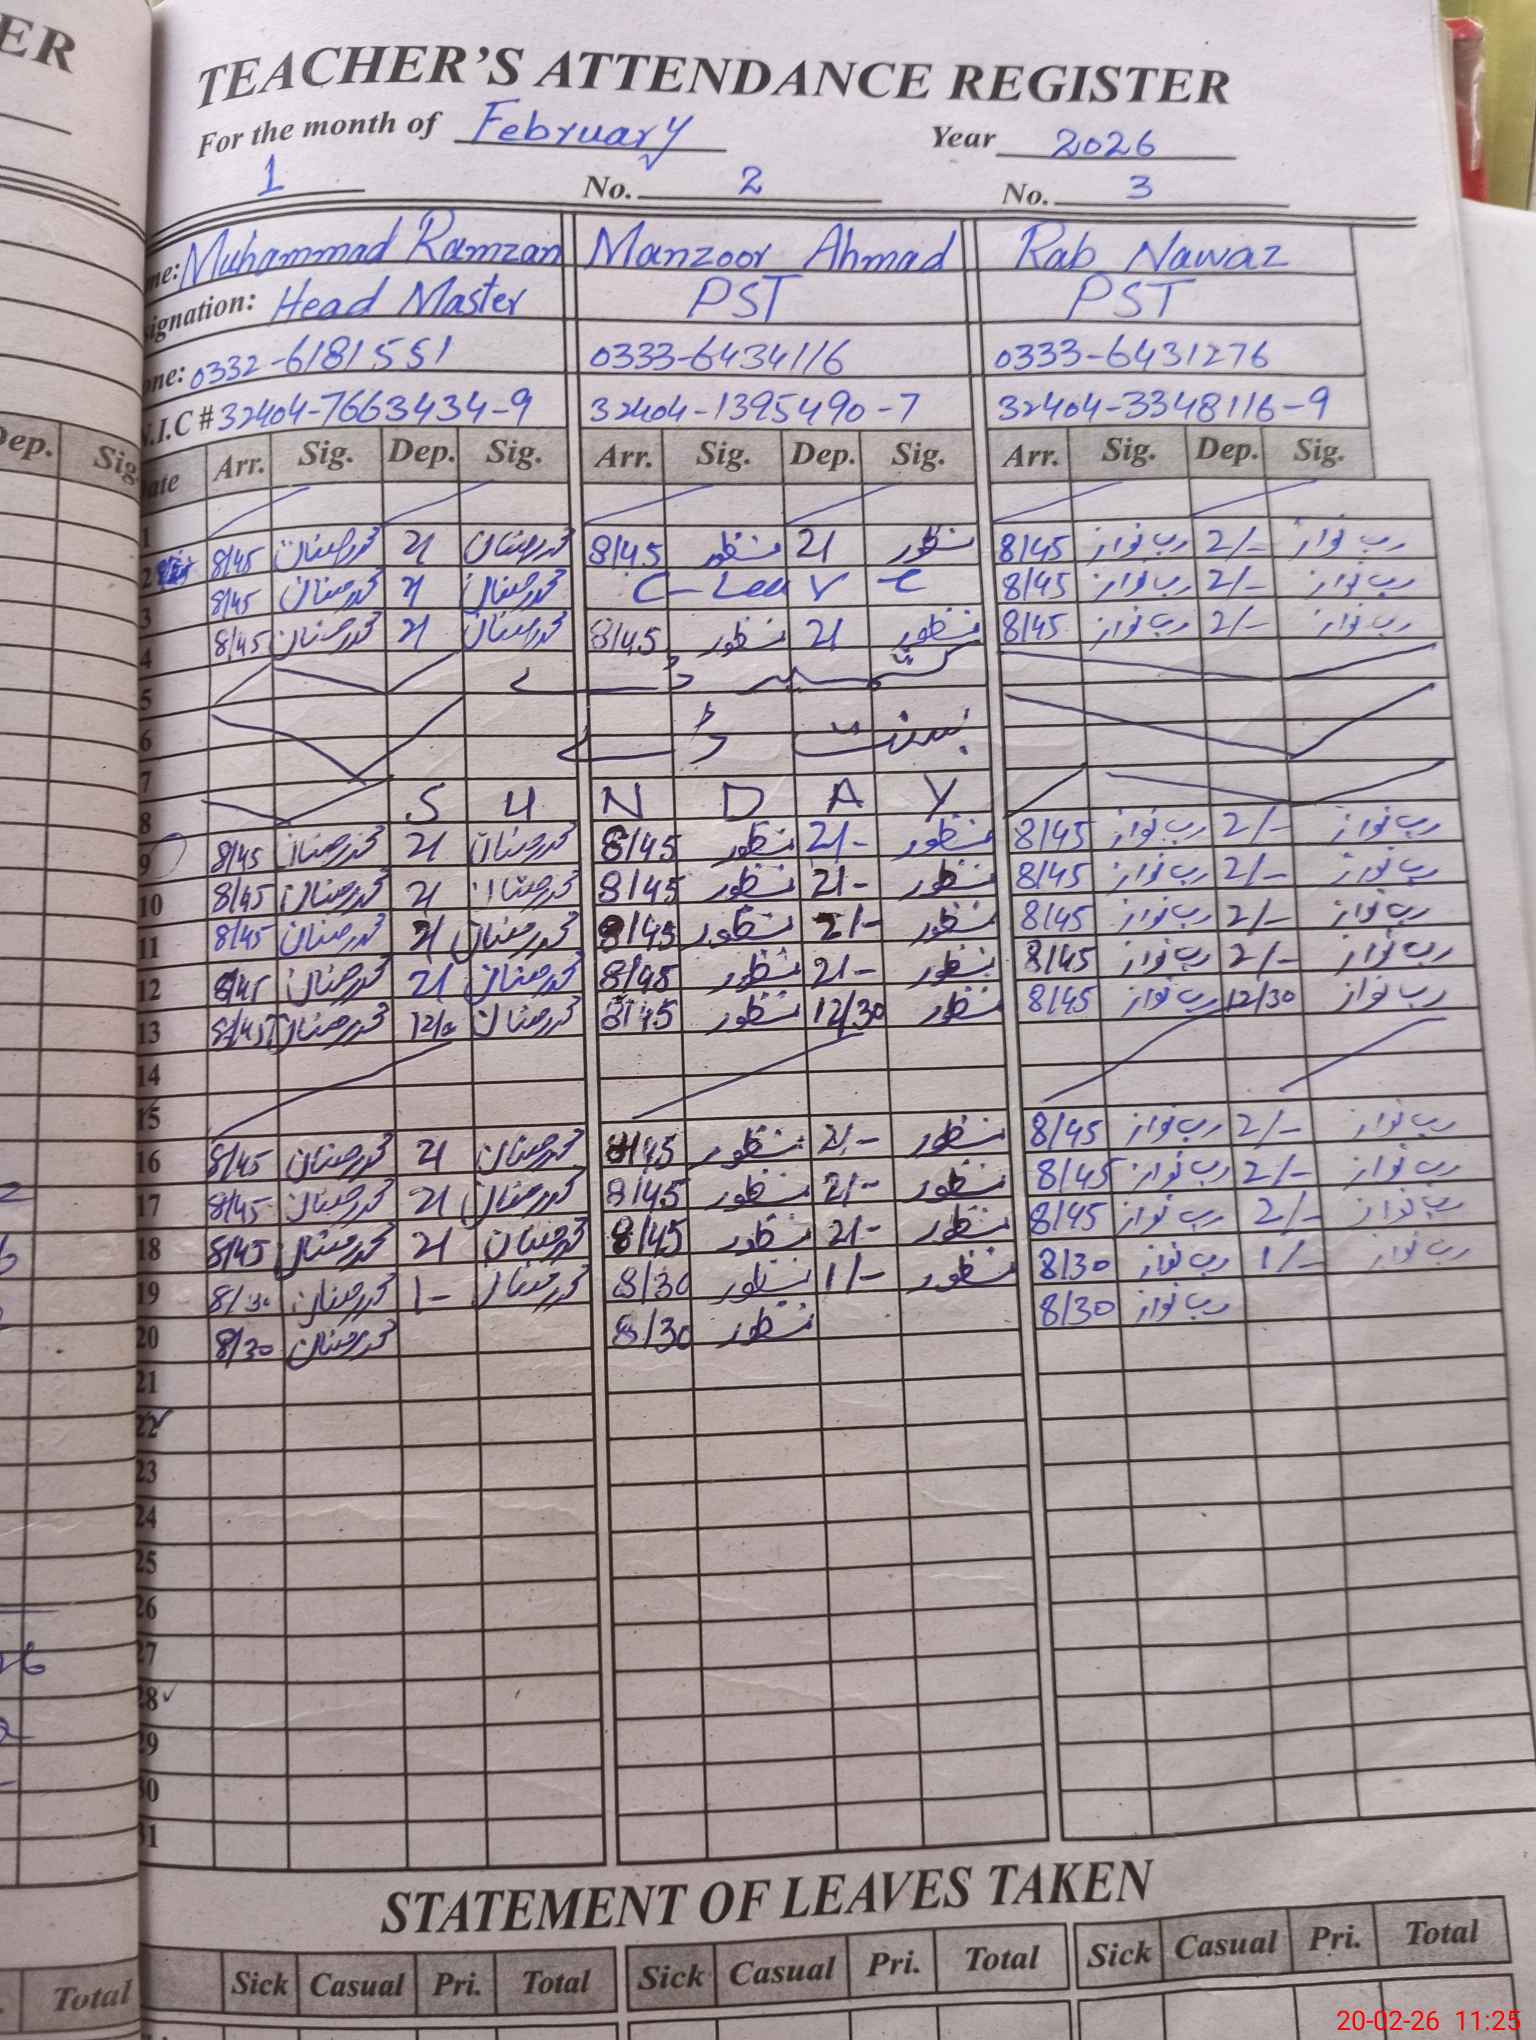 ER
TEACHER'S ATTENDANCE REGISTER
For the month of February Year 2026
1 No. 2 No. 3
me: Muhammad Ramzan Manzoor Ahmad Rab Nawaz
signation: Head Master PST PST
one: 0332-6181551 0333-6434116 0333-6431276
N.I.C # 32404-7663434-9 32404-1395490-7 32404-3348116-9
Dep. Sig
ate Arr. Sig. Dep. Sig. Arr. Sig. Dep. Sig. Arr. Sig. Dep. Sig.
1
2 8/45 محمد رمضان 2/ محمد رمضان 8/45 منظور 2/ منظور 8/45 رب نواز 2/- رب نواز
3 8/45 محمد رمضان 2/ محمد رمضان C-Leave 8/45 رب نواز 2/- رب نواز
4 8/45 محمد رمضان 2/ محمد رمضان 8/45 منظور 2/ منظور 8/45 رب نواز 2/- رب نواز
5 کشمیر ڈے
6 بسنت ڈے
7
8 SUNDAY
9 8/45 محمد رمضان 2/ محمد رمضان 8/45 منظور 2/- منظور 8/45 رب نواز 2/- رب نواز
10 8/45 محمد رمضان 2/ محمد رمضان 8/45 منظور 2/- منظور 8/45 رب نواز 2/- رب نواز
11 8/45 محمد رمضان 2/ محمد رمضان 8/45 منظور 2/- منظور 8/45 رب نواز 2/- رب نواز
12 8/45 محمد رمضان 2/ محمد رمضان 8/45 منظور 2/- منظور 8/45 رب نواز 2/- رب نواز
13 8/45 محمد رمضان محمد رمضان 8/45 منظور 12/30 منظور 8/45 رب نواز 12/30 رب نواز
14
15
16 8/45 محمد رمضان 2/ محمد رمضان 8/45 منظور 2/- منظور 8/45 رب نواز 2/- رب نواز
17 8/45 محمد رمضان 2/ محمد رمضان 8/45 منظور 2/- منظور 8/45 رب نواز 2/- رب نواز
18 8/45 محمد رمضان 2/ محمد رمضان 8/45 منظور 2/- منظور 8/45 رب نواز 2/- رب نواز
19 8/30 محمد رمضان 1- محمد رمضان 8/30 منظور 1/- منظور 8/30 رب نواز 1/- رب نواز
20 8/30 محمد رمضان 8/30 منظور 8/30 رب نواز
21
22
23
24
25
26
27
28
29
30
31
STATEMENT OF LEAVES TAKEN
Total Sick Casual Pri. Total Sick Casual Pri. Total Sick Casual Pri. Total
20-02-26 11:25